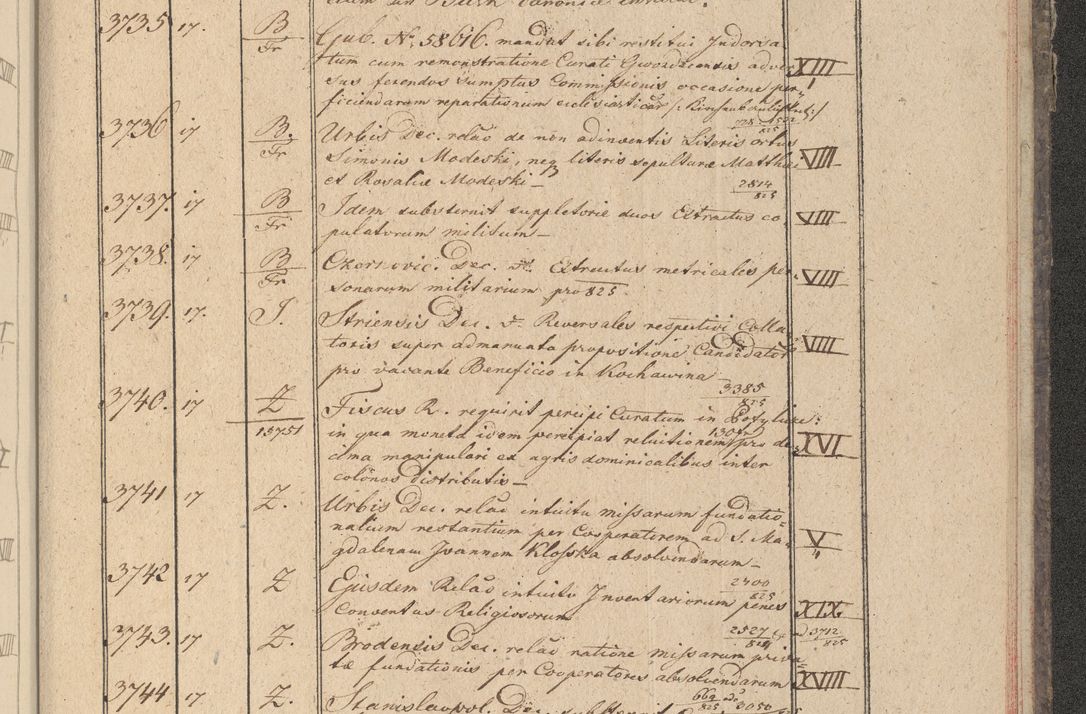 3735 17. B/Fr Gub. No. 58616. mandat sibi restitui Indorsa
tum cum remonstratione Curati Gwozdzensis adver XIII
sus ferendos sumptus Commissionis occasione per
ficiendarum reparationum ecclesiasticar
3736 17 B./Fr Urbis Dec. relāo de non adinventis Literis ortus
Simonis Modeski, neq literis sepulturæ Matthæi VIII
et Rosaliæ Modeski — 2814/825
3737. 17 B/Fr Idem substernit suppletorie duos Extractus co VIII
pulatorum militum —
3738. 17 B/Fr Czornovic. Dec. st. Extractus metricales per VIII
sonarum militarium pro 825.
3739. 17. J. Striensis Dec. st. Reversales respectivi Colla
toris super admanuata propositione Candidator VIII
pro vacante Beneficio in Kochawina —
3385/825
3740. 17 Z/13751 Fiscus R. requirit percipi Curatum in Potylicze:
in qua moneta idem percipiat reluitionem 130 fr pro de XVI
cima manipulari ex agris dominicalibus inter
colōnos distributis —
3741 17 Z. Urbis Dec. relāo intuitu missarum fundatio
nalium restantium per Cooperatorem ad S. Ma V
gdalenam Joannem Klosska absolvendarum —
2400/825
3742 17 Z Ejusdem Relāo intuitu Inventariorum penes XIX
Conventus Religiosorum
2527/824 et ad 3712/825
3743. 17 Z. Brodensis Dec. relāo ratione missarum priva
tæ fundationis per Cooperatores absolvendarum XVIII
669/825 3050
3744. 17 Z. Stanislaopol. Dec. substernit